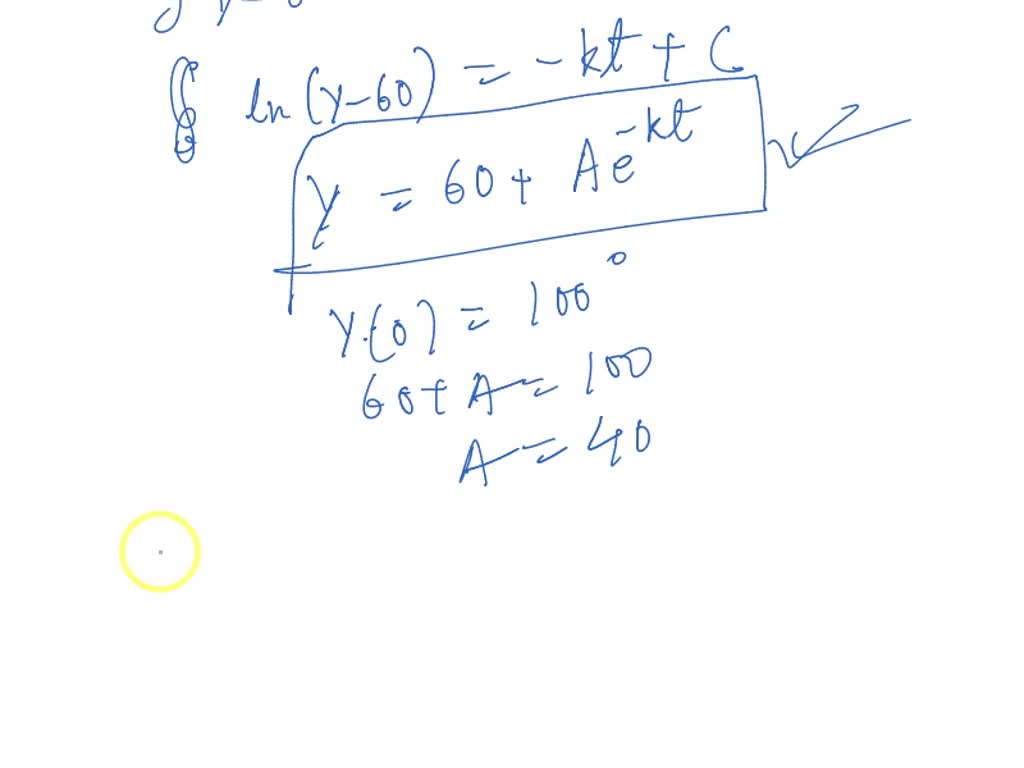 ln(y-60) = -kt + C
y = 60 + Ae^-kt
y(0) = 100°
60+A = 100
A = 40